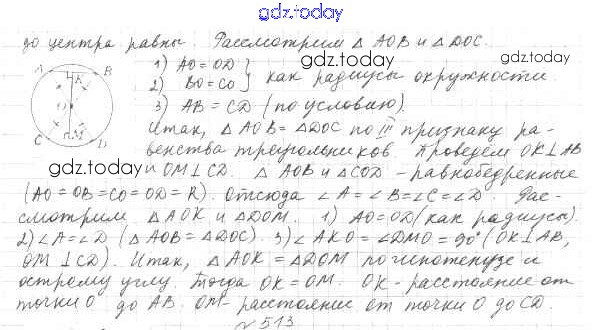 gdz.today
до центра равны. Рассмотрим △ AOB и △ DOC.
1) AO = OD
2) BO = CO } как радиусы окружности
gdz.today
3) AB = CD (по условию).
Итак, △ AOB = △ DOC по III признаку ра-
венства треугольников. Проведём OK ⊥ AB
и OM ⊥ CD. △ AOB и △ COD - равнобедренные
gdz.today
(AO = OB = CO = OD = R). Отсюда ∠A = ∠B = ∠C = ∠D. Рас-
смотрим △ AOK и △ DOM. 1) AO = OD (как радиусы).
2) ∠A = ∠D (△ AOB = △ DOC). 3) ∠ AKO = ∠ DMO = 90° (OK ⊥ AB,
gdz.today
OM ⊥ CD). Итак, △ AOK = △ DOM по гипотенузе и
острому углу. Тогда OK = OM. OK - расстояние от
точки O до AB. OM - расстояние от точки O до CD.
gdz.today
№ 513
A
K
B
O
C
M
D